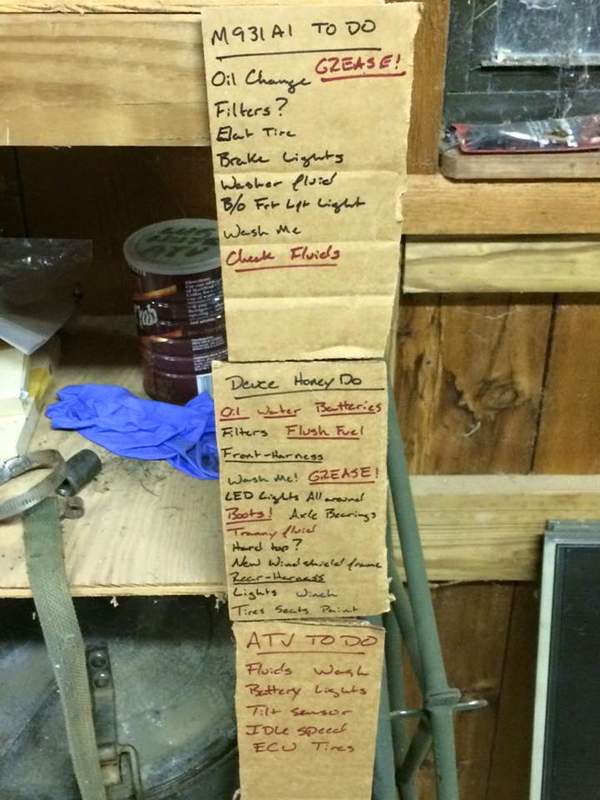 M931A1 TO DO
GREASE!
Oil Change
Filters?
Flat Tire
Brake Lights
Washer fluid
B/o Frt Lft Light
Wash Me
Check Fluids
Deuce Honey Do
Oil Water Batteries
Filters Flush Fuel
Front-Harness
Wash Me! GREASE!
LED Lights All around
Boots! Axle Bearings
Tranny fluid
Hard top?
New Windshield frame
Rear-Harness
Lights Winch
Tires Seats Paint
ATV TO DO
Fluids Wash
Battery Lights
Tilt sensor
IDLE speed
ECU Tires